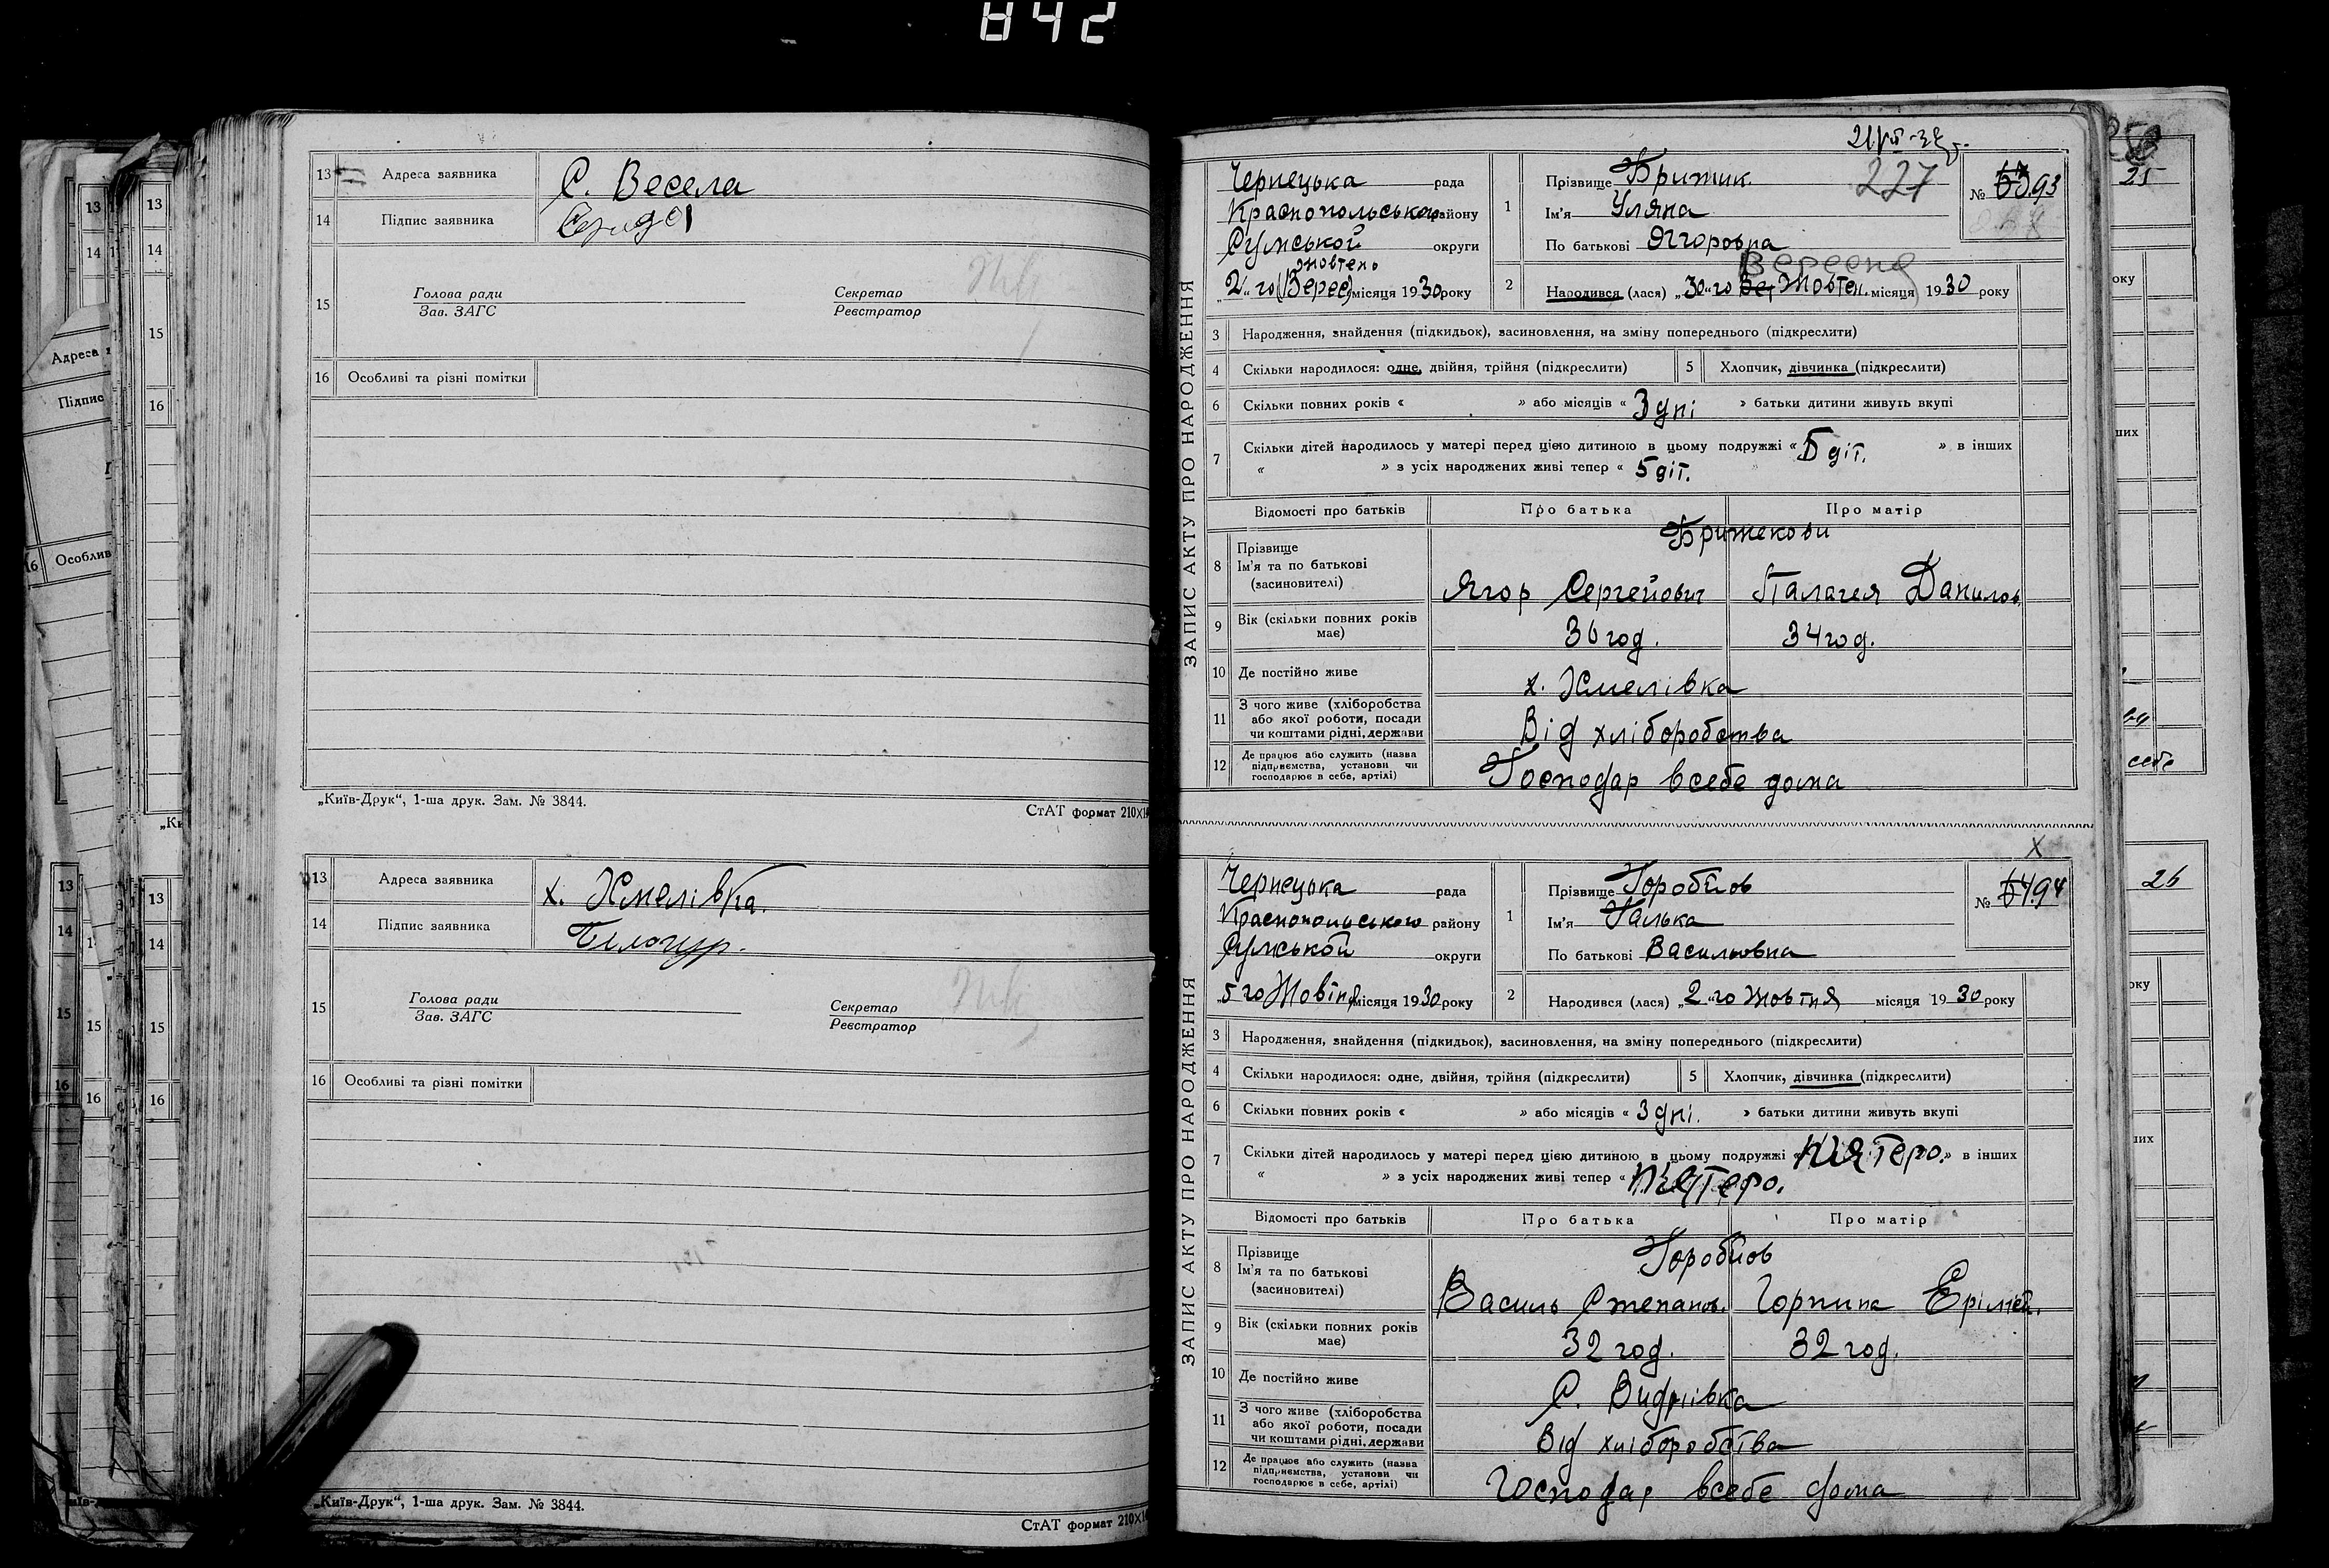 842
13 Адреса заявника С. Весела
14 Підпис заявника
15 Голова ради
Зав. ЗАГС
Секретар
Реєстратор
16 Особливі та різні помітки
„Київ-Друк“, 1-ша друк. Зам. № 3844.
СтАТ формат 210×1
13 Адреса заявника х. Хмелівка.
14 Підпис заявника Білогур.
15 Голова ради
Зав. ЗАГС
Секретар
Реєстратор
16 Особливі та різні помітки
„Київ-Друк“, 1-ша друк. Зам. № 3844.
СтАТ формат 210×1
ЗАПИС АКТУ ПРО НАРОДЖЕННЯ
Чернецька рада
Краснопольського району
Сумської округи
жовтень
„2“ го (Верес) місяця 1930 року
1 Прізвище Брижик. 227
Ім'я Уляна
По батькові Яггоровна
№ 93
Вересня
2 Народився (лася) „30“го Вер Жовтен. місяця 1930 року
3 Народження, знайдення (підкидьок), засиновлення, на зміну попереднього (підкреслити)
4 Скільки народилося: одне, двійня, трійня (підкреслити) 5 Хлопчик, дівчинка (підкреслити)
6 Скільки повних років « » або місяців « 3 дні » батьки дитини живуть вкупі
7 Скільки дітей народилось у матері перед цією дитиною в цьому подружжі « 5 діт. » в інших
« » з усіх народжених живі тепер « 5 діт.
Відомості про батьків Про батька Про матір
Брижекови
8 Прізвище
Ім'я та по батькові
(засиновителі)
Ягор Сергейович Палагея Данилов.
9 Вік (скільки повних років має) 36 год. 34 год.
10 Де постійно живе х. Хмелівка
11 З чого живе (хліборобства
або якої роботи, посади
чи коштами рідні, держави
Від хліборобства
12 Де працює або служить (назва
підприємства, установи чи
господарює в себе, артілі)
Господар всебе дома
ЗАПИС АКТУ ПРО НАРОДЖЕННЯ
Чернецька рада
Краснопольського району
Сумської округи
„5 го Жовтня місяця 1930 року
1 Прізвище Горобйов
Ім'я Галька
По батькові Васильовна
№ 94
2 Народився (лася) „2“го жовтня місяця 1930 року
3 Народження, знайдення (підкидьок), засиновлення, на зміну попереднього (підкреслити)
4 Скільки народилося: одне, двійня, трійня (підкреслити) 5 Хлопчик, дівчинка (підкреслити)
6 Скільки повних років « » або місяців « 3 дні. » батьки дитини живуть вкупі
7 Скільки дітей народилось у матері перед цією дитиною в цьому подружжі « пятеро. » в інших
« » з усіх народжених живі тепер « пятеро.
Відомості про батьків Про батька Про матір
Горобйов
8 Прізвище
Ім'я та по батькові
(засиновителі)
Василь Степанов. Горпина Ерімей.
9 Вік (скільки повних років має) 32 год. 32 год.
10 Де постійно живе С. Видрівка
11 З чого живе (хліборобства
або якої роботи, посади
чи коштами рідні, держави
Від хліборобства
12 Де працює або служить (назва
підприємства, установи чи
господарює в себе, артілі)
Господар всебе дома
25
себе
26